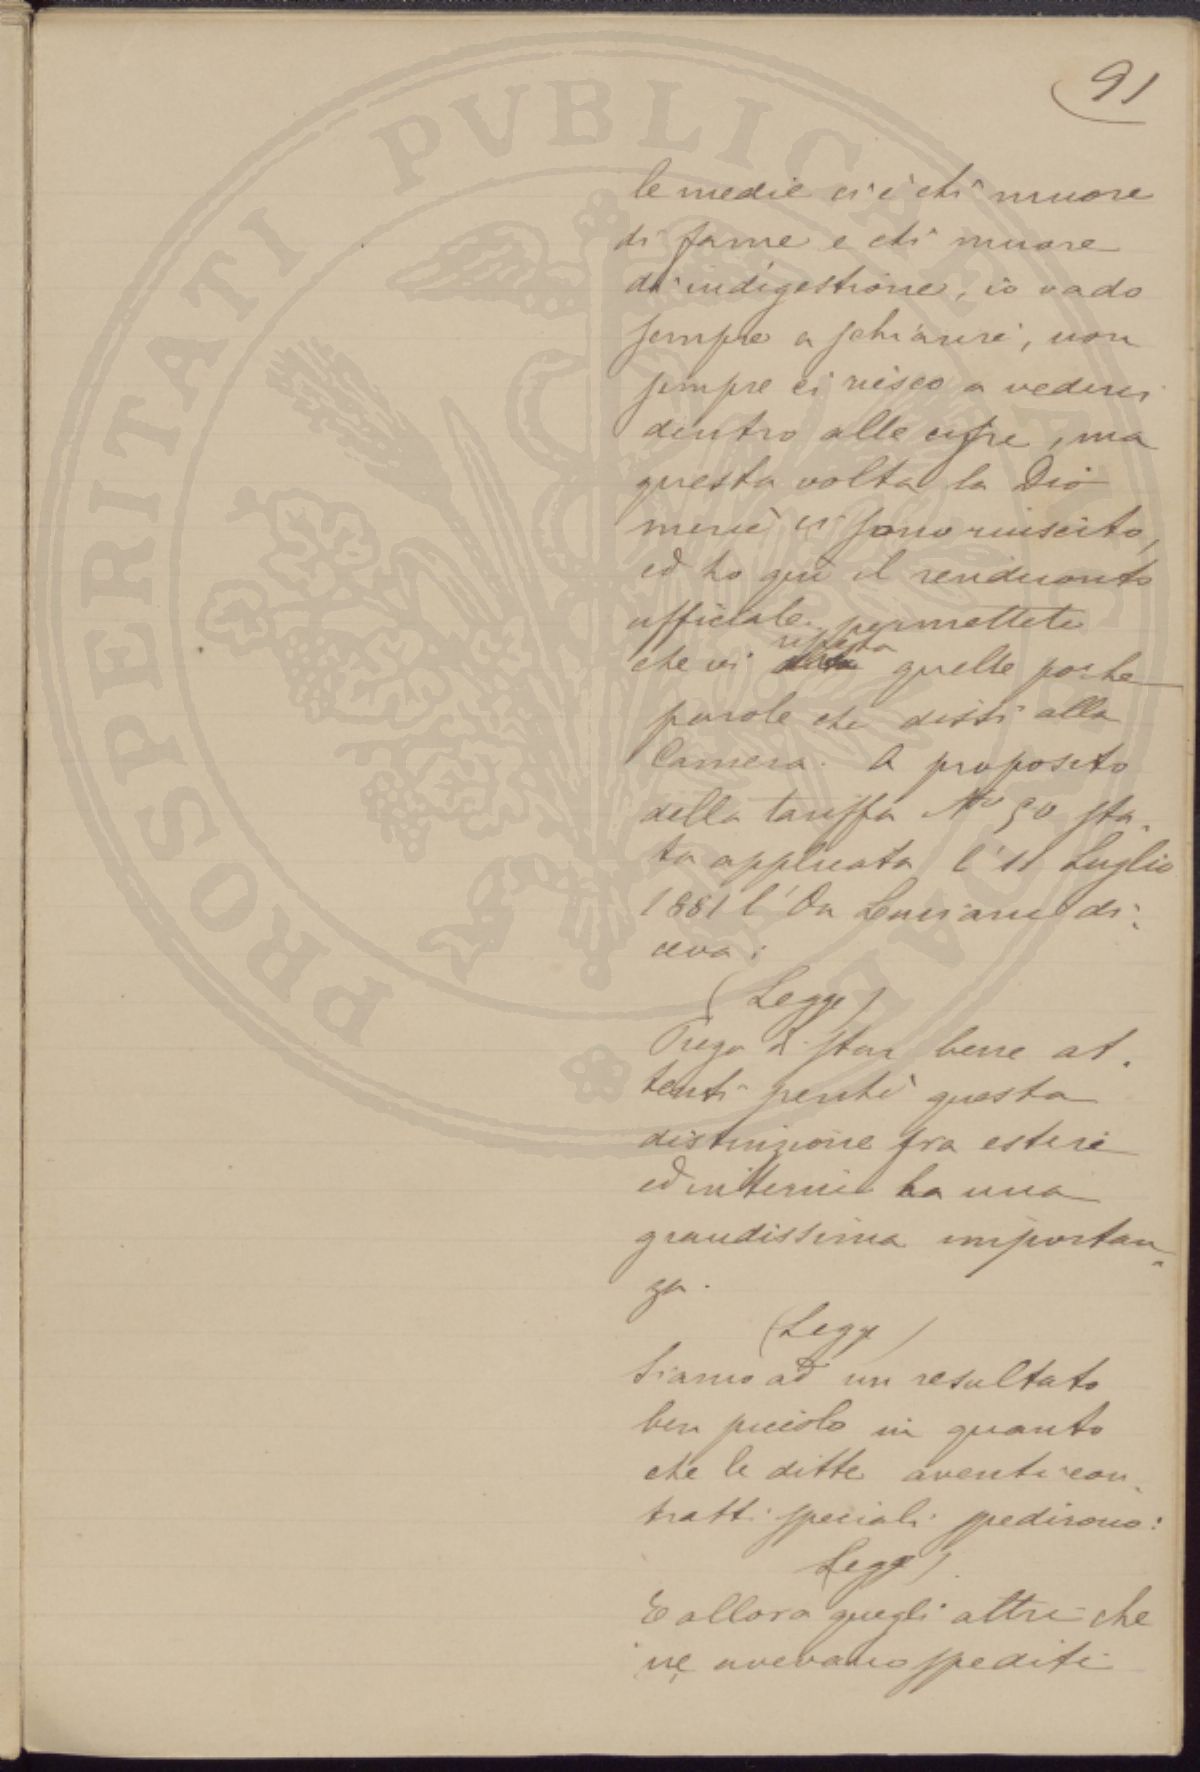 91
le medie ci è chi muore
di fame e chi muore
di indigestione, io vado
sempre a schiarire, non
sempre ci riesco a vederci
dentro alle cifre, ma
questa volta la Dio
mercè ci sono riuscito,
ed ho quì il rendiconto
ufficiale. permettete
che vi ripeta quelle poche
parole che dissi alla
Camera. A proposito
della tariffa No 50 sta-
ta applicata l'11 Luglio
1881 l'On Luciani di-
ceva:
(Legge)
Prego di star bene at-
tenti perchè questa
distinzione fra esteri
ed interni ha una
grandissima importan-
za.
(Legge)
Siamo ad un resultato
ben piccolo in quanto
che le ditte aventi con-
tratti speciali spedirono:
(Legge)
E allora quegli altri che
ne avevano spediti
PROSPERITATI PVBLICAE